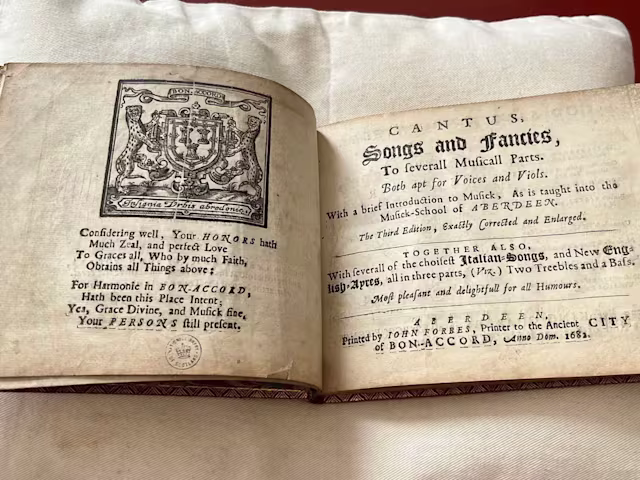 BON-ACCORD
Insignia Urbis abredoniæ
Considering well, Your HONORS hath
Much Zeal, and perfect Love
To Graces all, Who by much Faith,
Obtains all Things above;
For Harmonie in BON-ACCORD,
Hath been this Place Intent;
Yea, Grace Divine, and Musick fine,
Your PERSONS still present.
CANTUS,
Songs and Fancies,
To severall Musicall Parts.
Both apt for Voices and Viols.
With a brief Introduction to Musick, As is taught into the
Musick-School of ABERDEEN.
The Third Edition, Exactly Corrected and Enlarged.
TOGETHER ALSO,
With severall of the choisest Italian-Songs, and New Eng-
lish-Ayres, all in three parts, (Viz.) Two Treebles and a Bass.
Most pleasant and delightfull for all Humours.
ABERDEEN,
Printed by IOHN FORBES, Printer to the Ancient CITY
of BON-ACCORD, Anno Dom. 1682.